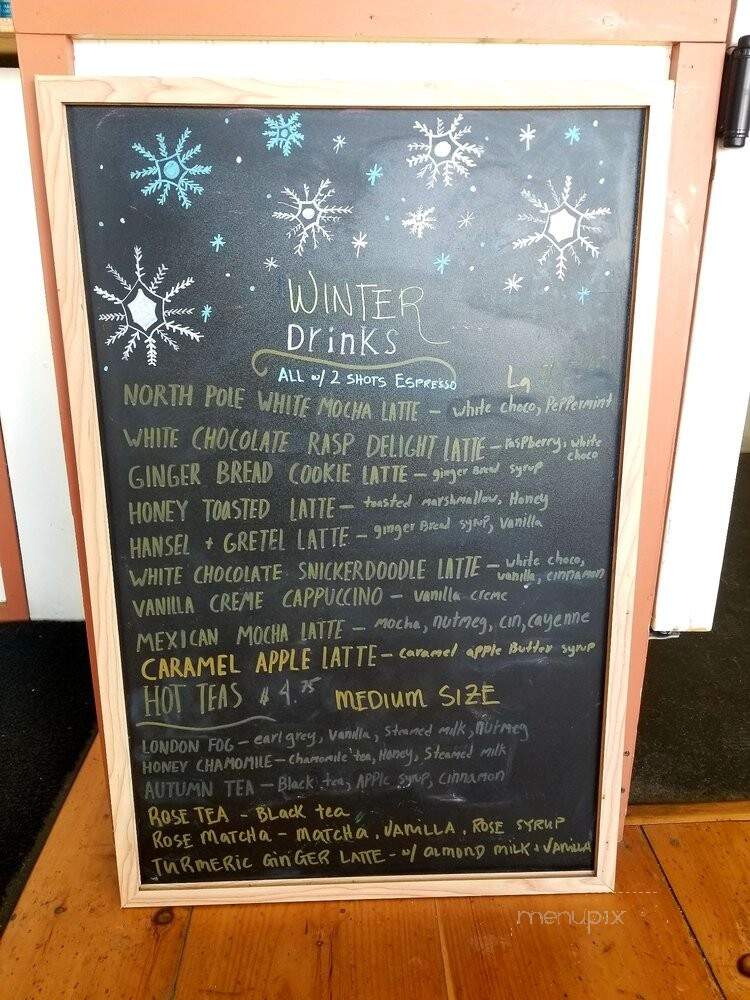 WINTER
Drinks
ALL w/ 2 SHOTS ESPRESSO
Lg
NORTH POLE WHITE MOCHA LATTE - white choco, Peppermint
WHITE CHOCOLATE RASP DELIGHT LATTE - raspberry, white
choco
GINGER BREAD COOKIE LATTE - ginger Bread syrup
HONEY TOASTED LATTE - toasted marshmallow, Honey
HANSEL + GRETEL LATTE - ginger Bread syrup, vanilla
WHITE CHOCOLATE SNICKERDOODLE LATTE - white choco,
vanilla, cinnamon
VANILLA CREME CAPPUCCINO - vanilla creme
MEXICAN MOCHA LATTE - mocha, nutmeg, cin, cayenne
CARAMEL APPLE LATTE - caramel apple Butter syrup
HOT TEAS $4.75 MEDIUM SIZE
LONDON FOG - earl grey, Vanilla, Steamed milk, nutmeg
HONEY CHAMOMILE - Chamomile tea, Honey, Steamed milk
AUTUMN TEA - Black tea, Apple syrup, Cinnamon
ROSE TEA - Black tea
ROSE MATCHA - MATCHA, VANILLA, ROSE SYRUP
TURMERIC GINGER LATTE - w/ ALMOND MILK + VANILLA
menupix